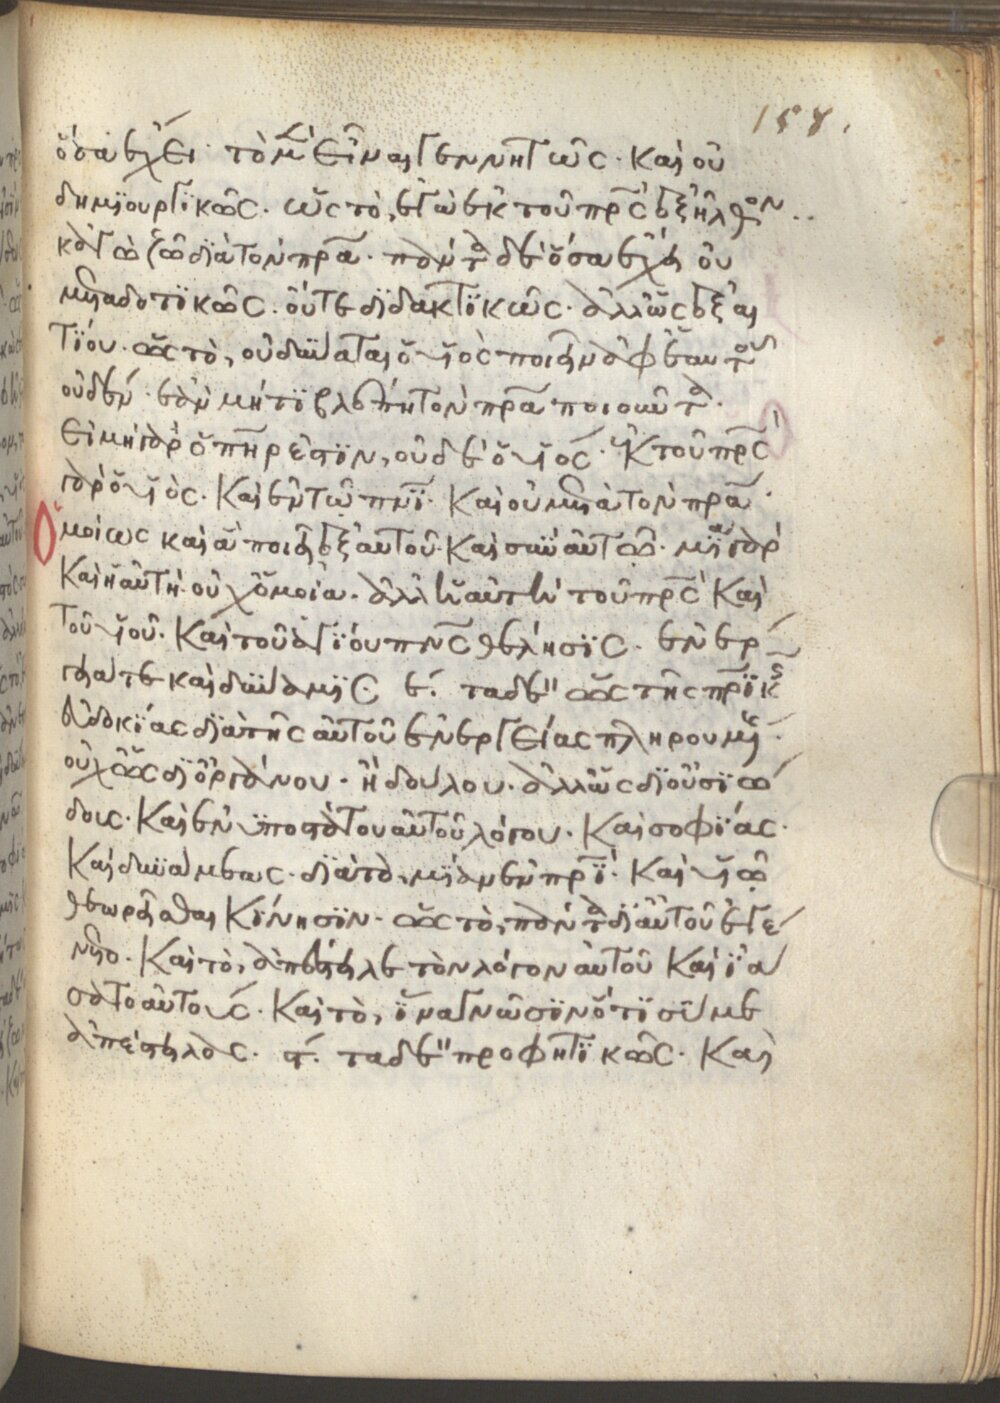 158.
ὅσα ἔχει· τὸ μὴ εἶναι γεννητῶς. καὶ οὐ
δημιουργικῶς. ὡς τὸ, ἐγὼ ἐκ τοῦ πρς ἐξῆλθον..
κἀγὼ ζῶ διὰ τὸν πρα. πάντα δὲ ὅσα ἔχει οὐ
μεταδοτικῶς. οὔτε διδακτικῶς. ἀλλ' ὡς ἐξ αι
τίου. ὡς τὸ, οὐ δύναται ὁ υἱὸς ποιεῖν ἀφ' ἑαυτοῦ
οὐδέν. ἐὰν μή τι βλέπῃ τὸν πρα ποιοῦντα.
εἰ μὴ γὰρ ὁ πηρ ἐστὶν, οὐδὲ ὁ υἱός. ἐκ τοῦ πρς
γὰρ ὁ υἱὸς. καὶ ἐν τῷ πρϊ. καὶ οὐ μετὰ τὸν πρα.
Ὁμοίως καὶ ἃ ποιεῖ ἐξ αὐτοῦ. καὶ σὺν αὐτῷ. μία γὰρ
καὶ ἡ αὐτὴ. οὐχ ὁμοία. ἀλλ' ἡ αὐτὴ τοῦ πρς καὶ
τοῦ υἱοῦ. καὶ τοῦ ἁγίου πνς θέλησις. ἐνέρ
γειά τε καὶ δύναμις. ε. τὰ δὲ ὡς τῆς πρικῆς
εὐδοκίας διὰ τῆς αὐτοῦ ἐνεργείας πληρουμένης.
οὐχ ὡς δι' ὀργάνου. ἢ δούλου. ἀλλ' ὡς δι' οὐσιώ
δους. καὶ ἐνυποστάτου αὐτοῦ λόγου. καὶ σοφίας.
καὶ δυνάμεως. διὰ τὸ, μίαν ἐν πρϊ. καὶ υἱῷ
θεωρεῖσθαι κίνησιν. ὡς τὸ, πάντα δι' αὐτοῦ ἐγέ
νετο. καὶ τὸ, ἀπέστειλε τὸν λόγον αὐτοῦ καὶ ἰά
σατο αὐτούς. καὶ τὸ, ἵνα γνῶσιν ὅτι σύ με
ἀπέστειλας. ϛ. τὰ δὲ προφητικῶς. καὶ